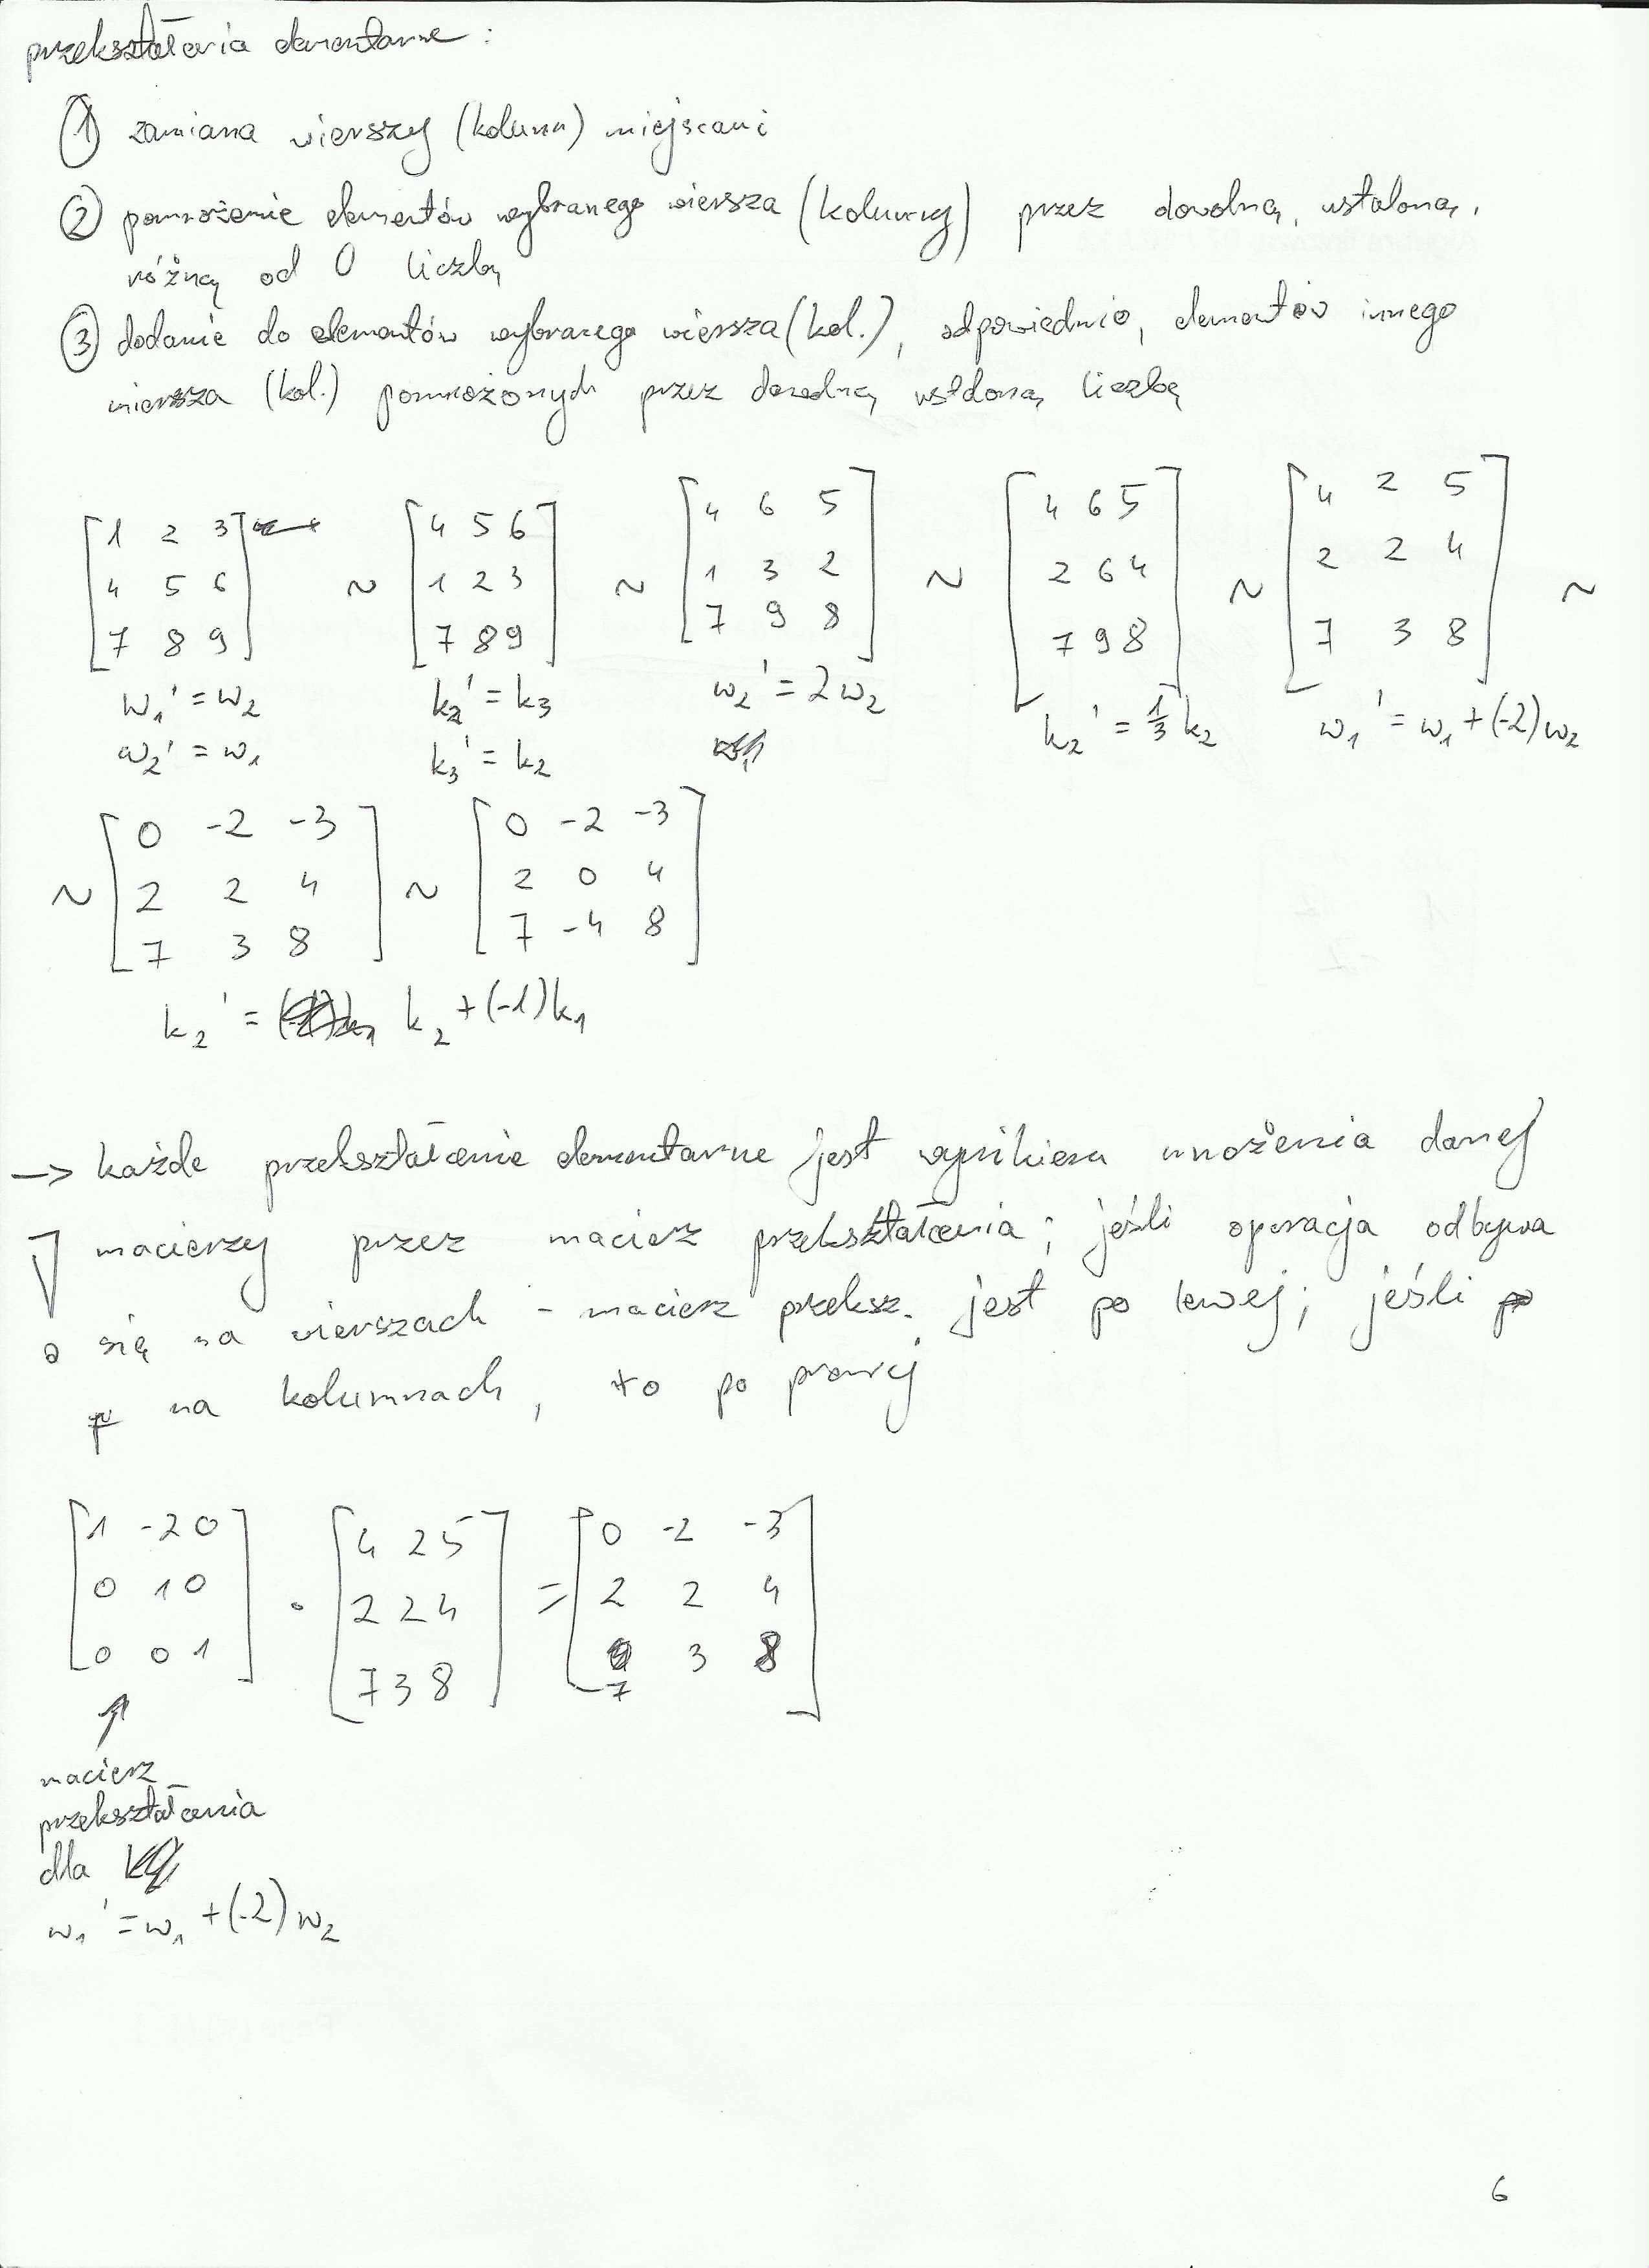 przekształcenia elementarne :
① zamiana wierszy (kolumn) miejscami
② pomnożenie elementów wybranego wiersza (kolumny) przez dowolną, ustaloną,
różną od 0 liczbę
③ dodanie do elementów wybranego wiersza (kol.), odpowiednio, elementów innego
wiersza (kol.) pomnożonych przez dowolną ustaloną liczbę
[1 2 3] [4 5 6] [4 6 5] [4 6 5] [4 2 5]
[4 5 6] ~ [1 2 3] ~ [1 3 2] ~ [2 6 4] ~ [2 2 4] ~
[7 8 9] [7 8 9] [7 9 8] [7 9 8] [7 3 8]
w₁' = w₂ k₂' = k₃ w₂' = 2w₂ k₂' = 1/3 k₂ w₁' = w₁ + (-2)w₂
w₂' = w₁ k₃' = k₂
[0 -2 -3] [0 -2 -3]
~ [2 2 4] ~ [2 0 4]
[7 3 8] [7 -4 8]
k₂' = k₂ + (-1)k₁
→ każde przekształcenie elementarne jest wynikiem mnożenia danej
macierzy przez macierz przekształcenia ; jeśli operacja odbywa
się na wierszach - macierz przeksz. jest po lewej ; jeśli
na kolumnach, to po prawej
[1 -2 0] [4 2 5] [0 -2 -3]
[0 1 0] · [2 2 4] = [2 2 4]
[0 0 1] [7 3 8] [7 3 8]
↑
macierz
przekształcenia
dla
w₁' = w₁ + (-2)w₂
6